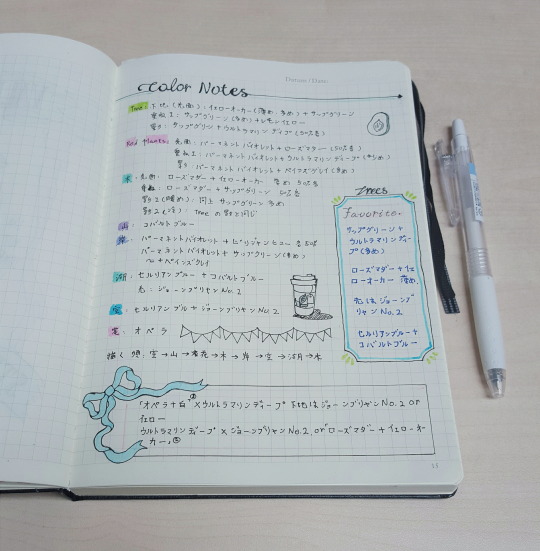 Color Notes
Datum / Date:
Tree: 下地(光面): イエローオーカー(薄め 多め) + サップグリーン
重ね1: サップグリーン(多め) + レモンイエロー
影: サップグリーン + ウルトラマリン ディープ (50%ぎ)
Red Plants: 光面: パーマネントバイオレット + ローズマダー
重ね1: パーマネント バイオレット + ウルトラマリンディープ
影: パーマネントバイオレット + ペインズグレイ
木: 光面: ローズマダー + イエローオーカー 薄め
重ね: ローズマダー + サップグリーン
影1(暖め): 同上 サップグリーン 多め
影2(冷): Treeの影と同じ
山: コバルトブルー
岸: パーマネントバイオレット + ビリジャンヒュー
パーマネント バイオレット + サップグリーン(多め)
+ペインズグレイ
湖: セルリアンブルー + コバルトブルー
光: ジョーンブリヤンNo.2
空: セルリアンブルー + ジョーンブリヤンNo.2
花: オペラ
描く 順: 空→山→
2mes
Favorite.
サップグリーン+
ウルトラマリンディー
プ(多め)
ローズマダー+イエ
ローオーカー 薄め
光はジョーンブ
リヤン No.2
セルリアンブルー+
コバルトブルー
「オペラ+白」×ウルトラマリンディープ 下地はジョーンブリヤン No.2 or
イエロー
ウルトラマリンディープ × ジョーンブリヤン No.2, or ローズマダー + イエローオー
カー」